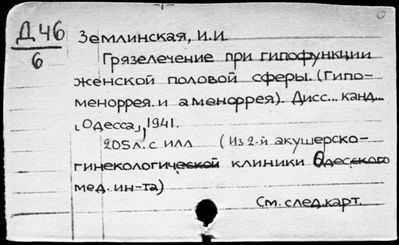 Д 46
6
Землинская, И.И.
Грязелечение при гипофункции
женской половой сферы. (Гипо-
меноррея и аменоррея). Дисс... канд...
[Одесса], 1941.
205л. с илл (Из 2-й акушерско-
гинекологической клиники Одесского
мед. ин-та)
См. след.карт.